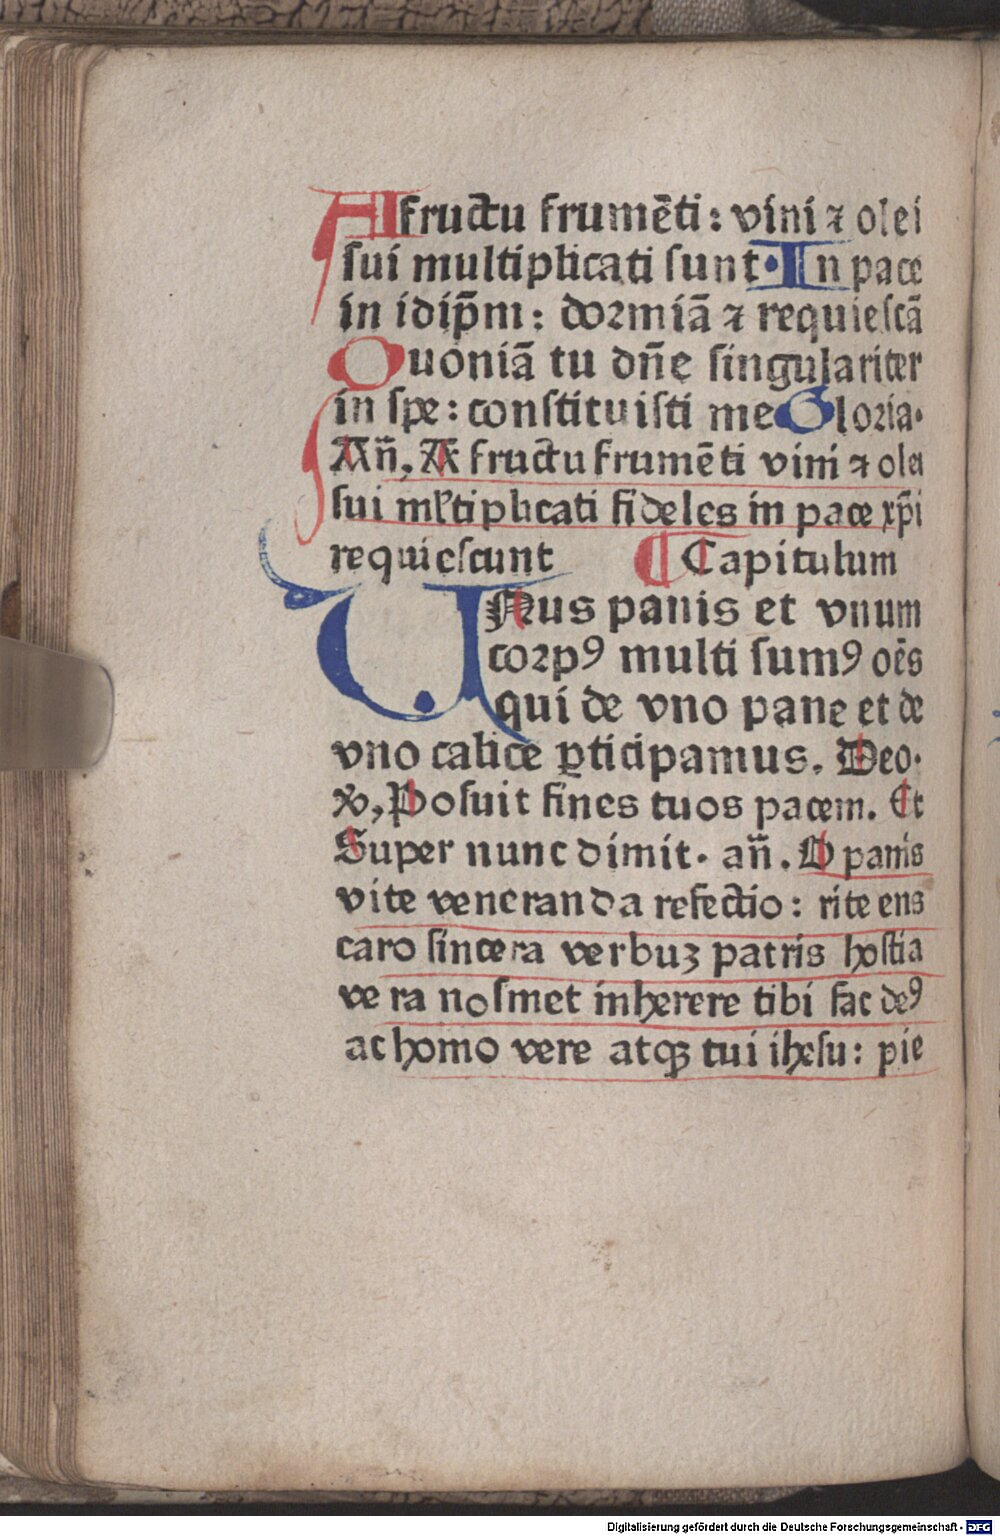 A fructu frumēti : vini ⁊ olei
sui multiplicati sunt · In pace
in idip̄m : dormiā ⁊ requiescā
Quoniā tu dn̄e singulariter
in spe : constituisti me Gloria·
An̄, A fructu frumēti vini ⁊ olei
sui ml̓tiplicati fideles in pace xp̄i
requiescunt ¶ Capitulum
UNus panis et vnum
corpꝰ multi sumꝰ oēs
qui de vno pane et de
vno calice ꝑticipamus. Deo·
℣, Posuit fines tuos pacem. Et
Super nunc dimit· an̄. O panis
vite veneranda refectio : rite ens
caro sincera verbuꝫ patris hostia
vera nosmet inherere tibi fac deꝰ
ac homo vere atqꝫ tui ihesu : pie
Digitalisierung gefördert durch die Deutsche Forschungsgemeinschaft - DFG